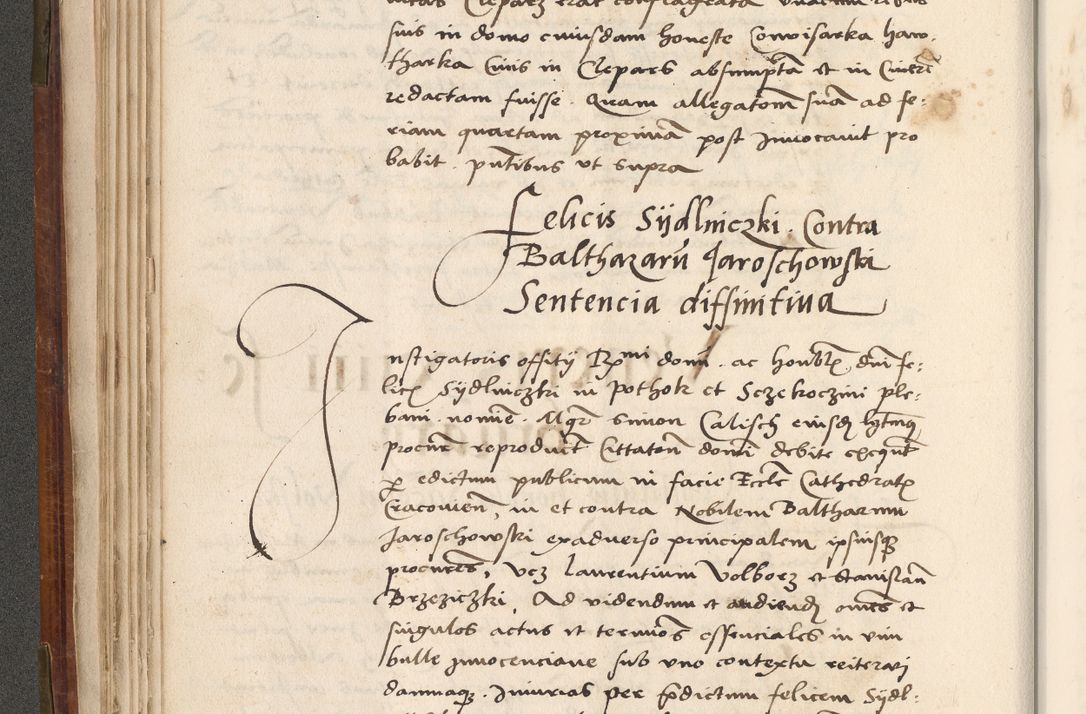 suis in domo cuiusdam honeste Cowisarka haw,
tharka Civis in Clepars absumpta et in Cinere
redactam fuisse. Quam allegatom suã ad fe,
riam quartam proximã post Invocavit pro
babit. pñtibus ut supra
Felicis Sijdlniczki. Contra
Balthazarũ Jaroschowski
Sentencia diffinitiva
Instigatoris offitij Rmi domi. ac honbł dni fe,
licis Sydlniczki in Pothok et Sczekoczini ple,
bani. nomie. Mgr Simon Calisch eiusd
procur reproduxt Cittatom domi debite exequt
p edictum publicum in facie Eccle Cathedralis
Cracovien, in et contra Nobilem Baltharum
Jaroschowski exadverso principalem ipsiusq
procures, vcz laurentium Volborz et Stanislaũ
Brzeziczki, Ad videndum et audiend omes et
singulos actus et termos essenciales in vim
bulle Innocenciane sub uno contextu reiterari
damnaq. Iniurias per pdictum felicem Sydl,